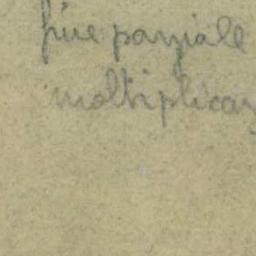 fine parziale
moltiplicaz